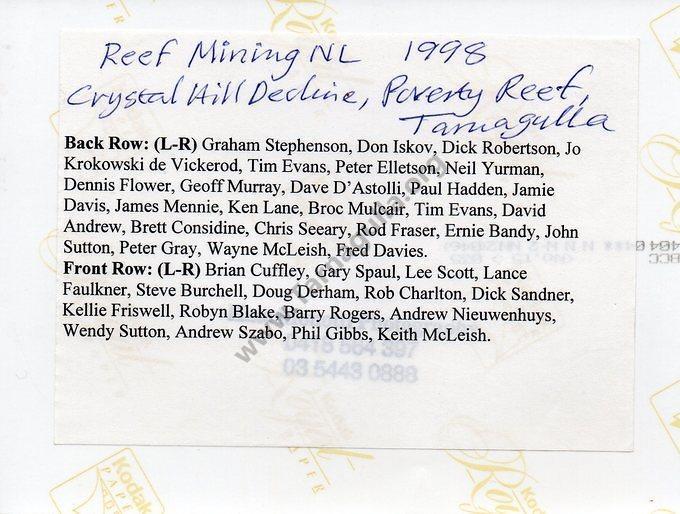 Reef Mining NL 1998
Crystal Hill Decline, Poverty Reef,
Tarnagulla
Back Row: (L-R) Graham Stephenson, Don Iskov, Dick Robertson, Jo
Krokowski de Vickerod, Tim Evans, Peter Elletson, Neil Yurman,
Dennis Flower, Geoff Murray, Dave D'Astolli, Paul Hadden, Jamie
Davis, James Mennie, Ken Lane, Broc Mulcair, Tim Evans, David
Andrew, Brett Considine, Chris Seeary, Rod Fraser, Ernie Bandy, John
Sutton, Peter Gray, Wayne McLeish, Fred Davies.
Front Row: (L-R) Brian Cuffley, Gary Spaul, Lee Scott, Lance
Faulkner, Steve Burchell, Doug Derham, Rob Charlton, Dick Sandner,
Kellie Friswell, Robyn Blake, Barry Rogers, Andrew Nieuwenhuys,
Wendy Sutton, Andrew Szabo, Phil Gibbs, Keith McLeish.
03 5443 0888
www.tarnagulla.org
Kodak
PAPER
Royal